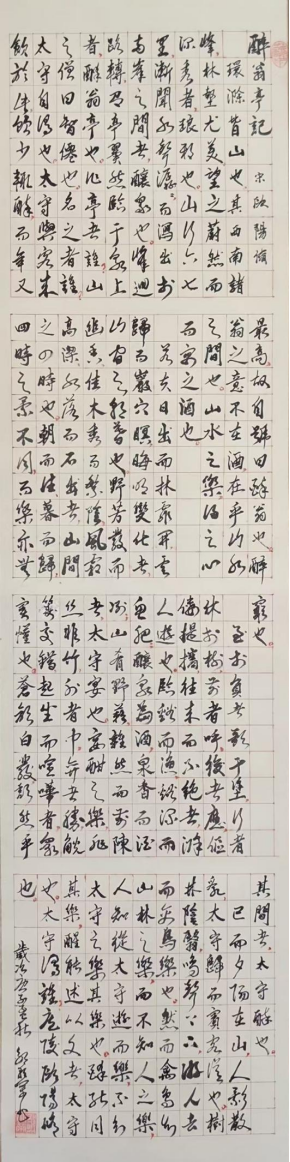 醉翁亭記 宋欧陽脩
環滁皆山也其西南諸
峰林壑尤美望之蔚然而
深秀者瑯琊也山行六七
里漸聞水聲潺〻而瀉出於
兩峯之間者釀泉也峰迴
路轉有亭翼然臨于泉上
者醉翁亭也作亭者誰山
之僧曰智僊也名之者誰
太守自謂也太守與客來
飲於此飲少輒醉而年又
最高故自號曰醉翁也醉
翁之意不在酒在乎山水
之間也山水之樂得之心
而寓之酒也
若夫日出而林霏開雲
歸而巖穴暝晦明變化者
山間之朝暮也野芳發而
幽香佳木秀而繁陰風霜
高潔水落而石出者山間
之四時也朝而往暮而歸
四時之景不同而樂亦無
窮也
至於負者歌于塗行者
休於樹前者呼後者應傴
僂提攜往來而不絕者滁
人遊也臨谿而漁谿深而
魚肥釀泉為酒泉香而酒
洌山肴野蔌雜然而前陳
者太守宴也宴酣之樂非
絲非竹射者中弈者勝觥
籌交錯起坐而喧嘩者眾
賓懽也蒼顏白髮頹然乎
其間者太守醉也
已而夕陽在山人影散
亂太守歸而賓客從也樹
林陰翳鳴聲上下遊人去
而禽鳥樂也然而禽鳥知
山林之樂而不知人之樂
人知從太守遊而樂不知
太守之樂其樂也醉能同
其樂醒能述以文者太守
也太守謂誰廬陵歐陽脩
也 歲次